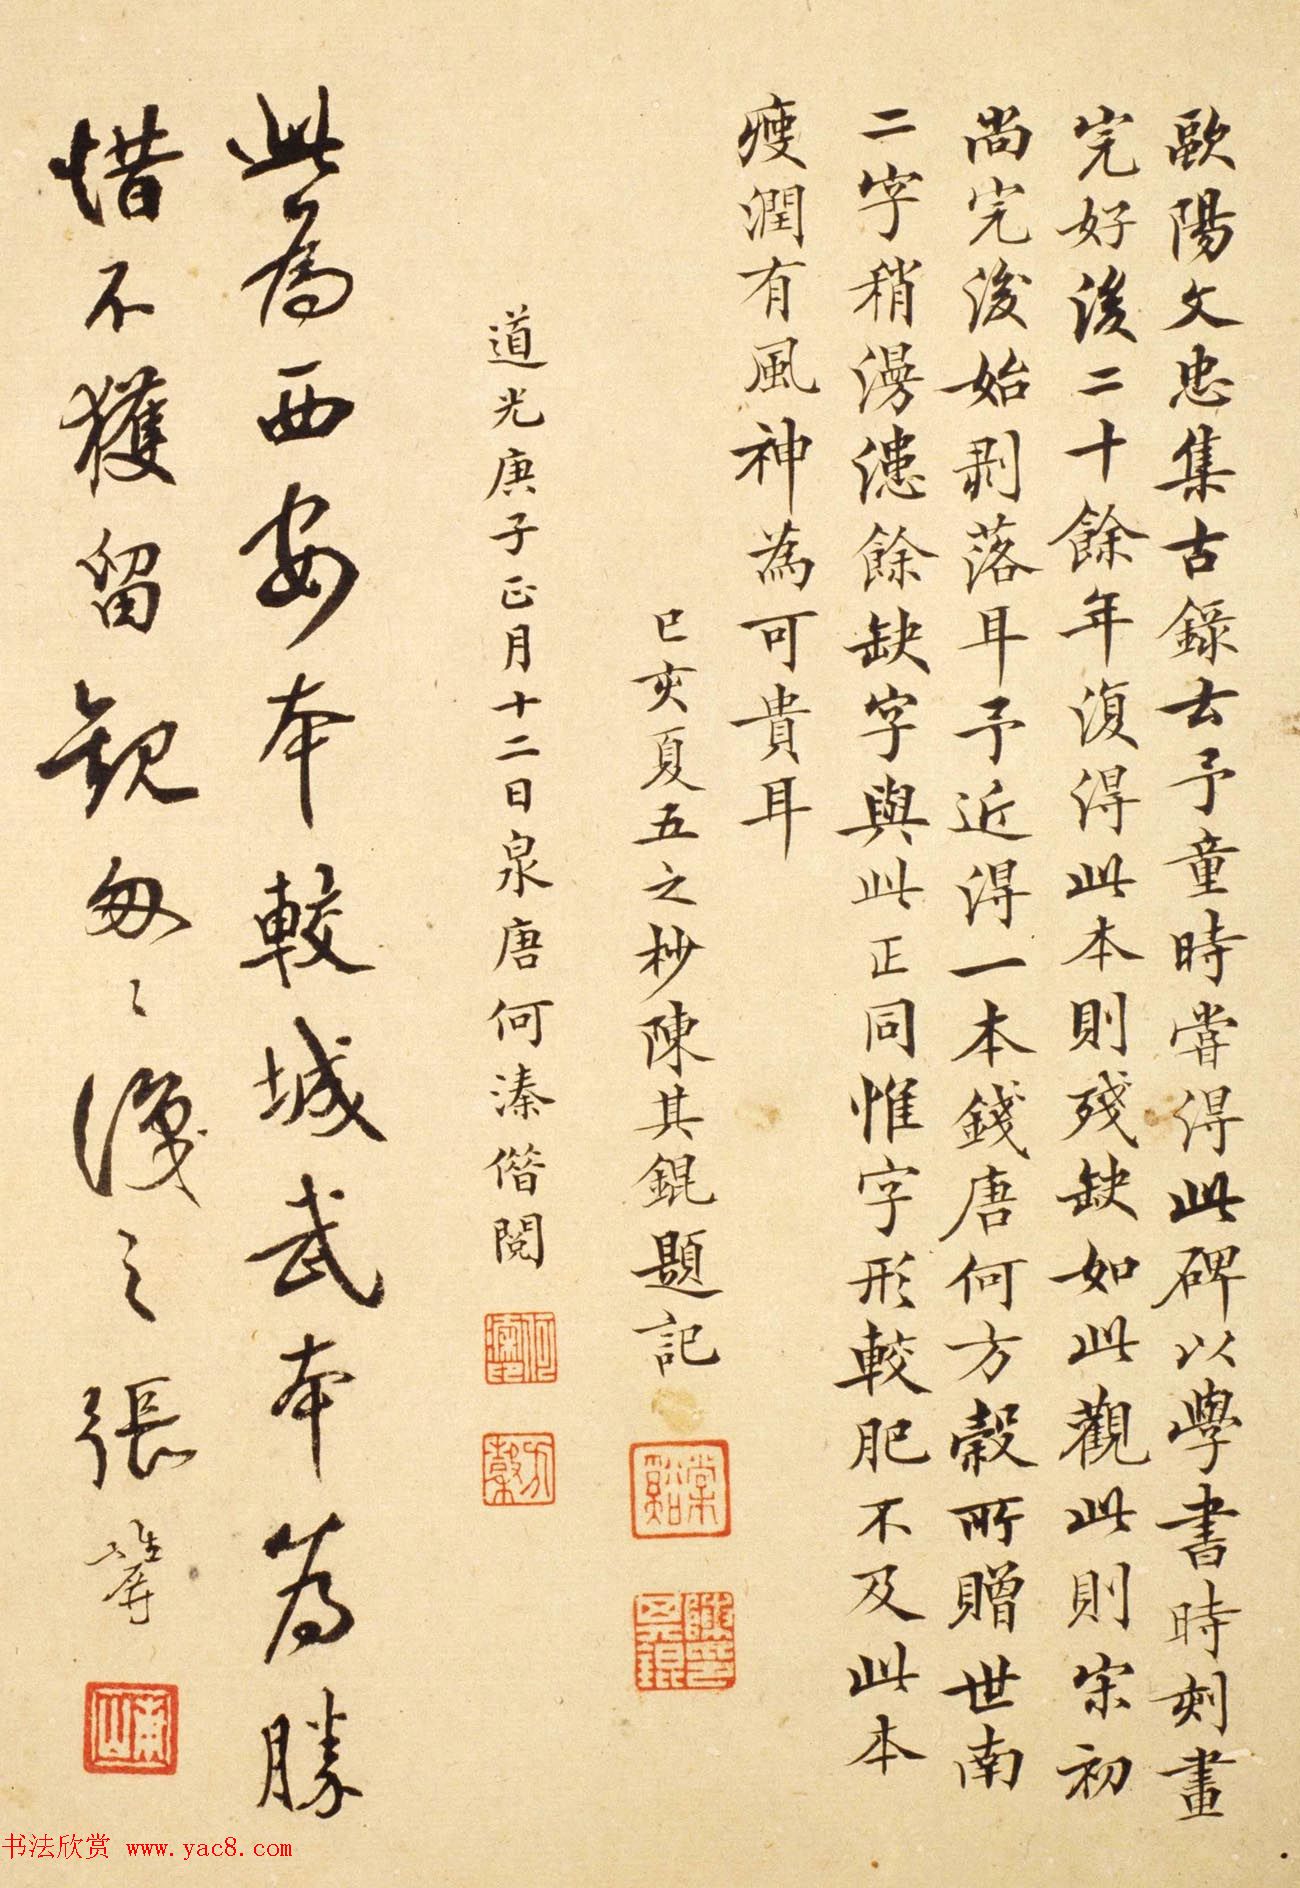 歐陽文忠集古錄云予童時嘗得此碑以學書時刻畫
完好後二十餘年復得此本則殘缺如此觀此則宋初
尚完後始剥落耳予近得一本錢唐何方穀所贈世南
二字稍漫漶餘缺字與此正同惟字形較肥不及此本
瘦潤有風神為可貴耳
己亥夏五之杪陳其錕題記
棠谿
陳其錕印
道光庚子正月十二日泉唐何溱僭閱
何溱印
方穀
此為西安本較城武本為勝
惜不獲留觀匆匆還之張
書法欣赏 www.yac8.com